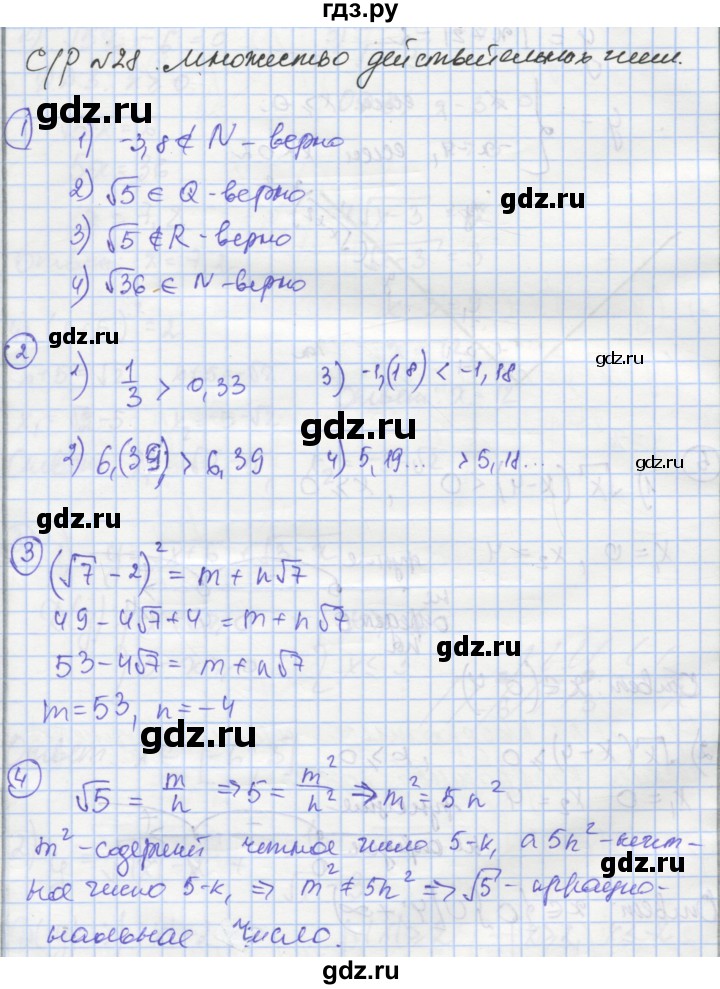 гдз.ру
С/Р №28. Множество действительных чисел.
gdz.ru
1
1) -3,8 ∉ N - верно
2) √5 ∈ Q - верно
gdz.ru
3) √5 ∉ R - верно
4) √36 ∈ N - верно
gdz.ru
2
1) 1/3 > 0,33 3) -1,(18) < -1,18
gdz.ru
gdz.ru
2) 6,(39) > 6,39 4) 5,19... > 5,18...
gdz.ru
3
(√7 - 2)² = m + n√7
49 - 4√7 + 4 = m + n√7
53 - 4√7 = m + n√7
gdz.ru
m = 53, n = -4
gdz.ru
4
√5 = m/n ⇒ 5 = m²/n² ⇒ m² = 5n²
m² - содержит четное число 5-к, а 5n² - нечет-
gdz.ru
ное число 5-к, ⇒ m² ≠ 5n² ⇒ √5 - иррацио-
нальное число.
gdz.ru
gdz.ru